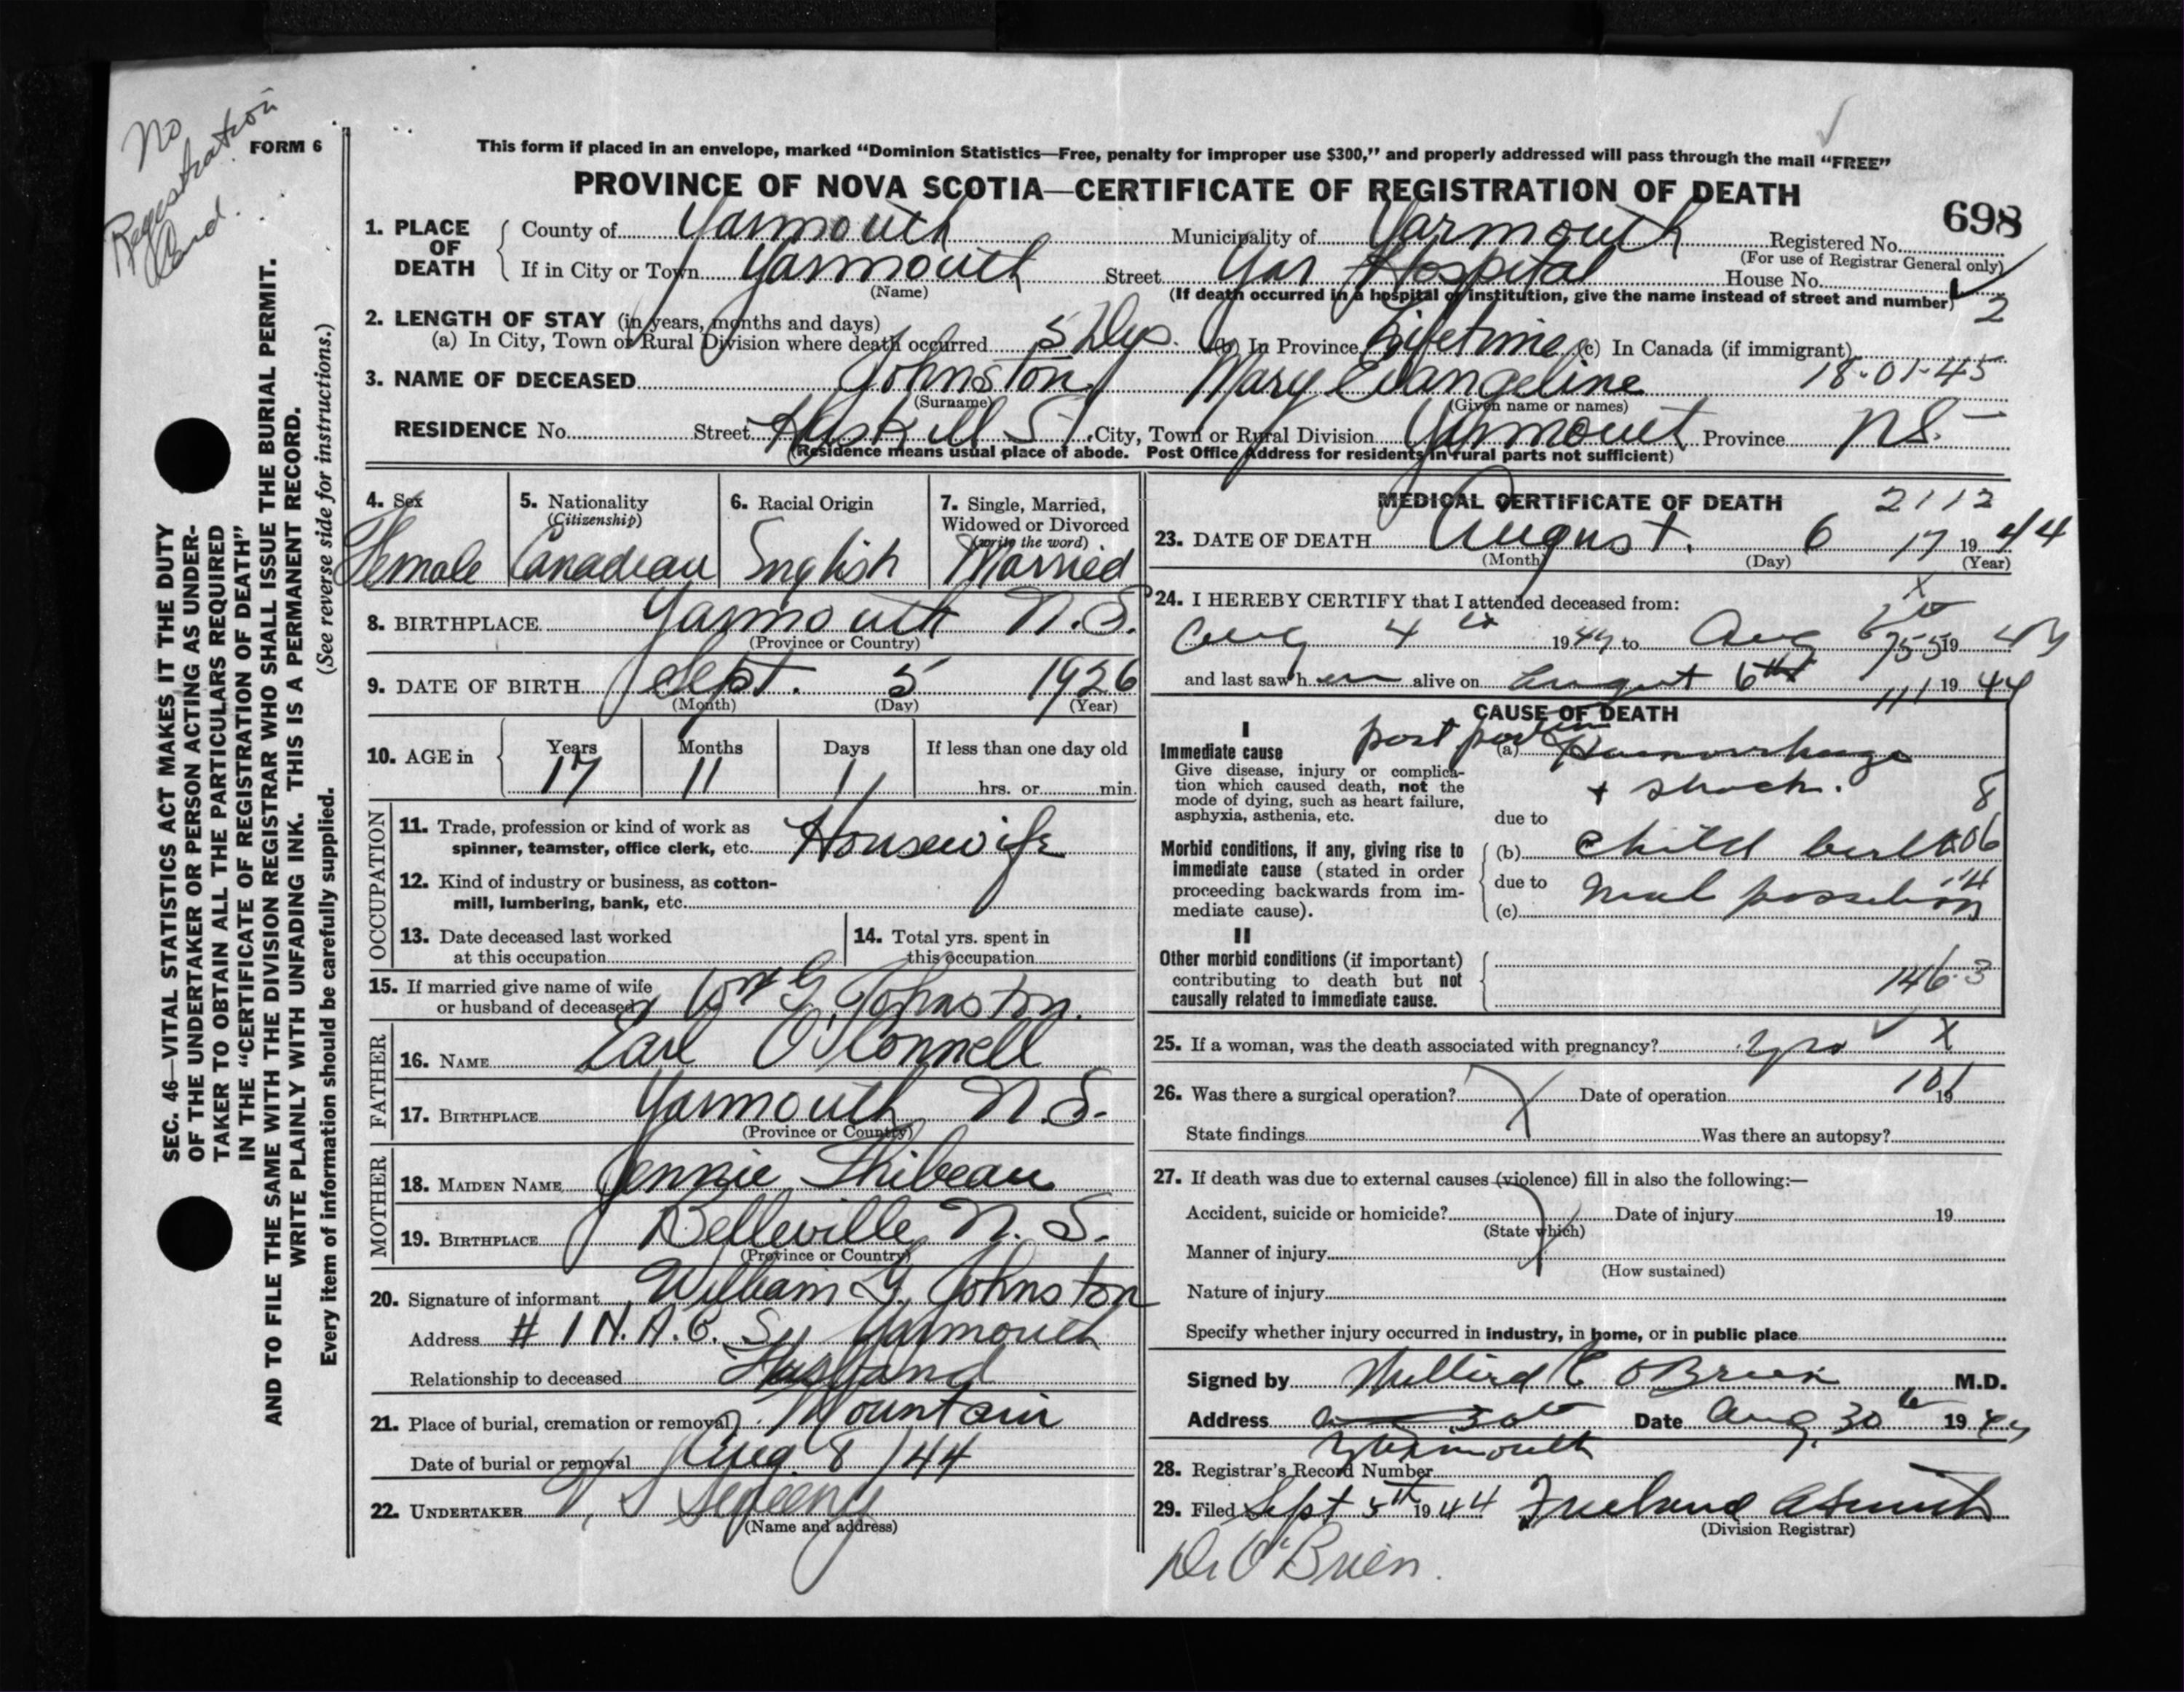 No
Registration
Card.
FORM 6
SEC. 46—VITAL STATISTICS ACT MAKES IT THE DUTY
OF THE UNDERTAKER OR PERSON ACTING AS UNDER-
TAKER TO OBTAIN ALL THE PARTICULARS REQUIRED
IN THE "CERTIFICATE OF REGISTRATION OF DEATH"
AND TO FILE THE SAME WITH THE DIVISION REGISTRAR WHO SHALL ISSUE THE BURIAL PERMIT.
WRITE PLAINLY WITH UNFADING INK. THIS IS A PERMANENT RECORD.
Every item of information should be carefully supplied. (See reverse side for instructions.)
This form if placed in an envelope, marked "Dominion Statistics—Free, penalty for improper use $300," and properly addressed will pass through the mail "FREE"
PROVINCE OF NOVA SCOTIA—CERTIFICATE OF REGISTRATION OF DEATH
698
1. PLACE OF DEATH County of Yarmouth Municipality of Yarmouth Registered No.
(For use of Registrar General only)
If in City or Town Yarmouth Street Yar Hospital House No.
(Name) (If death occurred in a hospital or institution, give the name instead of street and number)
2
2. LENGTH OF STAY (in years, months and days)
(a) In City, Town or Rural Division where death occurred 5 Dys. (b) In Province Lifetime (c) In Canada (if immigrant)
3. NAME OF DECEASED Johnston Mary Evangeline 18-01-45
(Surname) (Given name or names)
RESIDENCE No. Street Haskell St. City, Town or Rural Division Yarmouth Province N.S.
(Residence means usual place of abode. Post Office Address for residents in rural parts not sufficient)
4. Sex
Female
5. Nationality
(Citizenship)
Canadian
6. Racial Origin
English
7. Single, Married,
Widowed or Divorced
(write the word)
Married
8. BIRTHPLACE Yarmouth N.S.
(Province or Country)
9. DATE OF BIRTH Sept. 5 1926
(Month) (Day) (Year)
10. AGE in Years Months Days If less than one day old
17 11 1 hrs. or min.
OCCUPATION
11. Trade, profession or kind of work as
spinner, teamster, office clerk, etc. Housewife
12. Kind of industry or business, as cotton-
mill, lumbering, bank, etc.
13. Date deceased last worked
at this occupation
14. Total yrs. spent in
this occupation
15. If married give name of wife
or husband of deceased Wm G. Johnston.
FATHER
16. NAME Earl O'Connell
17. BIRTHPLACE Yarmouth N.S.
(Province or Country)
MOTHER
18. MAIDEN NAME Jennie Thibeau
19. BIRTHPLACE Belleville N.S.
(Province or Country)
20. Signature of informant William G. Johnston
Address # 1 N.A.G. Yarmouth
Relationship to deceased Husband
21. Place of burial, cremation or removal Mountain
Date of burial or removal Aug 8/44
22. UNDERTAKER V S Sweeny
(Name and address)
MEDICAL CERTIFICATE OF DEATH 2112
23. DATE OF DEATH August. 6 17 19 44
(Month) (Day) (Year)
x
24. I HEREBY CERTIFY that I attended deceased from:
Aug 4th 1944 to Aug 6th 755 19 44
and last saw her alive on August 6th 111 19 44
CAUSE OF DEATH
I
Immediate cause
Give disease, injury or complica-
tion which caused death, not the
mode of dying, such as heart failure,
asphyxia, asthenia, etc.
post partum
(a) Haemorrhage
+ shock. 8
due to
Morbid conditions, if any, giving rise to
immediate cause (stated in order
proceeding backwards from im-
mediate cause).
(b) Child birth 06
due to
(c) mal position 14
II
Other morbid conditions (if important)
contributing to death but not
causally related to immediate cause.
146.3
25. If a woman, was the death associated with pregnancy? yes X
26. Was there a surgical operation? Date of operation 19 101
State findings Was there an autopsy?
27. If death was due to external causes (violence) fill in also the following:—
Accident, suicide or homicide? Date of injury 19
(State which)
Manner of injury
(How sustained)
Nature of injury
Specify whether injury occurred in industry, in home, or in public place
Signed by Millard C O'Brien M.D.
Address 30th Date Aug 30th 1944
Yarmouth
28. Registrar's Record Number
29. Filed Sept 5th 1944 Freeland A Smith
(Division Registrar)
Dr O'Brien.